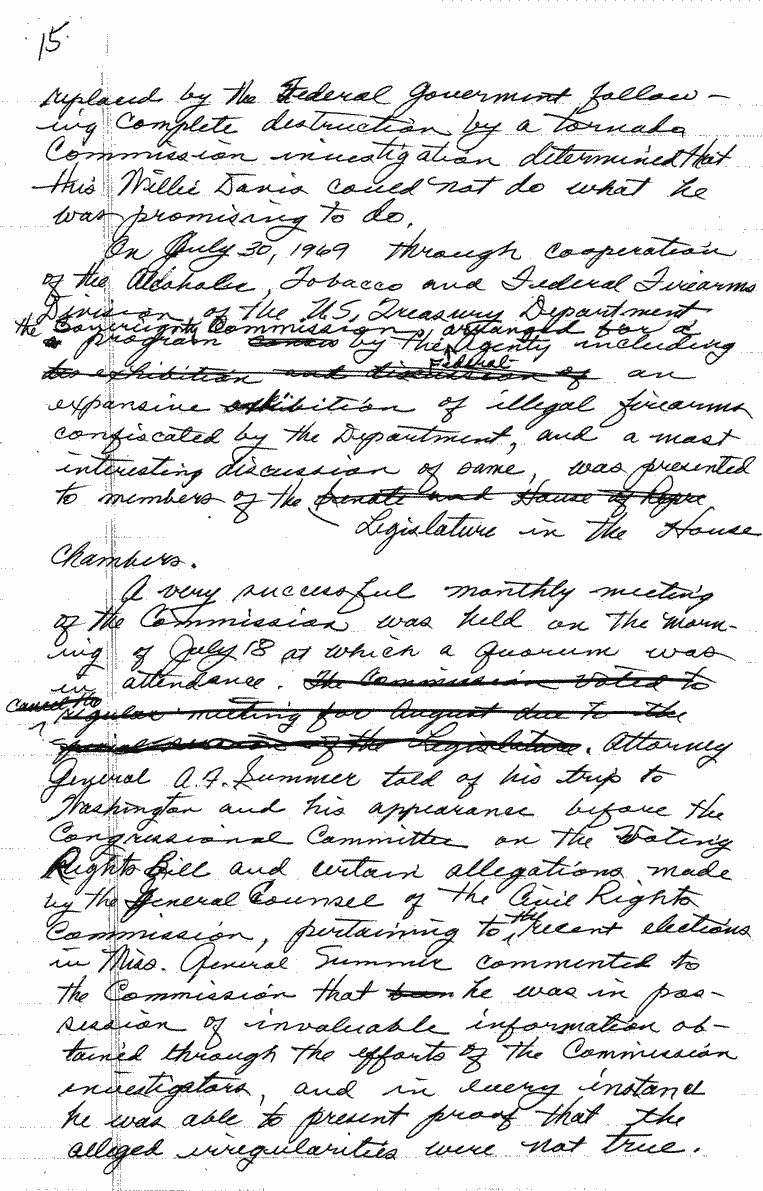 15
replaced by the Federal Goverment follow-
ing complete destruction by a tornado
Commission investigation determined that
this Willie Davis could not do what he
was promising to do.
On July 30, 1969 through cooperation
of the Alcoholic, Tobacco and Federal Firearms
Division of the U.S. Treasury Department
the Sovereignty Commission arranged for a
program by the Federal Agency including
the exhibition and discussion of an
expansive exhibition of illegal firearms
confiscated by the Department, and a most
interesting discussion of same, was presented
to members of the Senate and House of Repre
Legislature in the House
Chambers.
A very successful monthly meeting
of the Commission was held on the morn-
ing of July 18 at which a quorum was
in attendance. The Commission voted to
cancel the
regular meeting for August due to the
special session of the Legislature. Attorney
General A.F. Summer told of his trip to
Washington and his appearance before the
Congressional Committee on the Voting
Rights Bill and certain allegations made
by the General Counsel of the Civil Rights
Commission, pertaining to the recent elections
in Miss. General Summer commented to
the Commission that he was in pos-
session of invaluable information ob-
tained through the efforts of the Commission
investigators, and in every instance
he was able to present proof that the
alleged irregularities were not true.